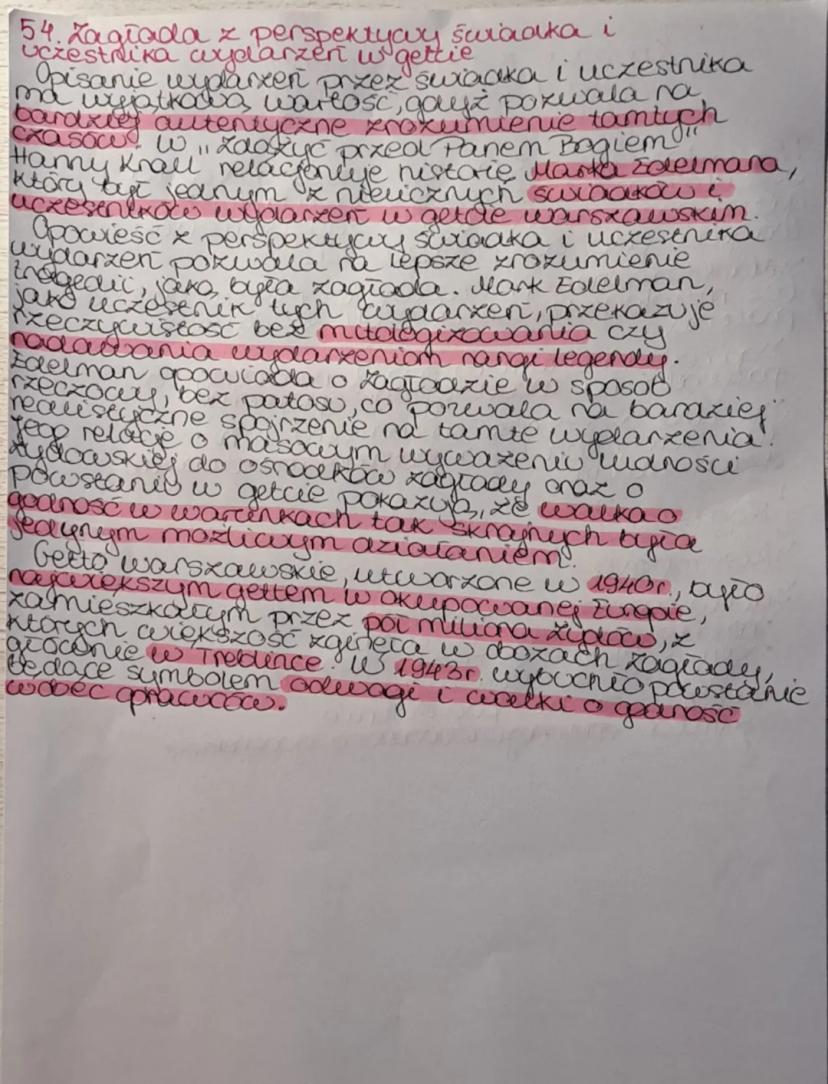 54. Zagłada z perspektywy świadka i
uczestnika wydarzeń w getcie
Opisanie wydarzeń przez świadka i uczestnika
ma wyjątkową wartość, gdyż pozwala na
bardziej autentyczne zrozumienie tamtych
czasów. W „Zdążyć przed Panem Bogiem"
Hanny Krall relacjonuje historię Marka Edelmana,
który był jednym z nielicznych świadków i
uczestników wydarzeń w getcie warszawskim.
Opowieść z perspektywy świadka i uczestnika
wydarzeń pozwala na lepsze zrozumienie
tragedii, jaką była zagłada. Mark Edelman,
jako uczestnik tych wydarzeń, przekazuje
rzeczywistość bez mitologizowania czy
nadawania wydarzeniom rangi legendy.
Edelman opowiada o zagładzie w sposób
rzeczowy, bez patosu, co pozwala na bardziej
realistyczne spojrzenie na tamte wydarzenia.
Jego relacje o masowym wywożeniu ludności
żydowskiej do ośrodków zagłady oraz o
powstaniu w getcie pokazują, że walka o
godność w warunkach tak skrajnych była
jedynym możliwym działaniem.
Getto warszawskie, utworzone w 1940r., było
największym gettem w okupowanej Europie,
zamieszkałym przez pół miliona Żydów, z
których większość zginęła w obozach zagłady,
głównie w Treblince. W 1943r. wybuchło powstanie
będące symbolem odwagi i walki o godność
wobec oprawców.